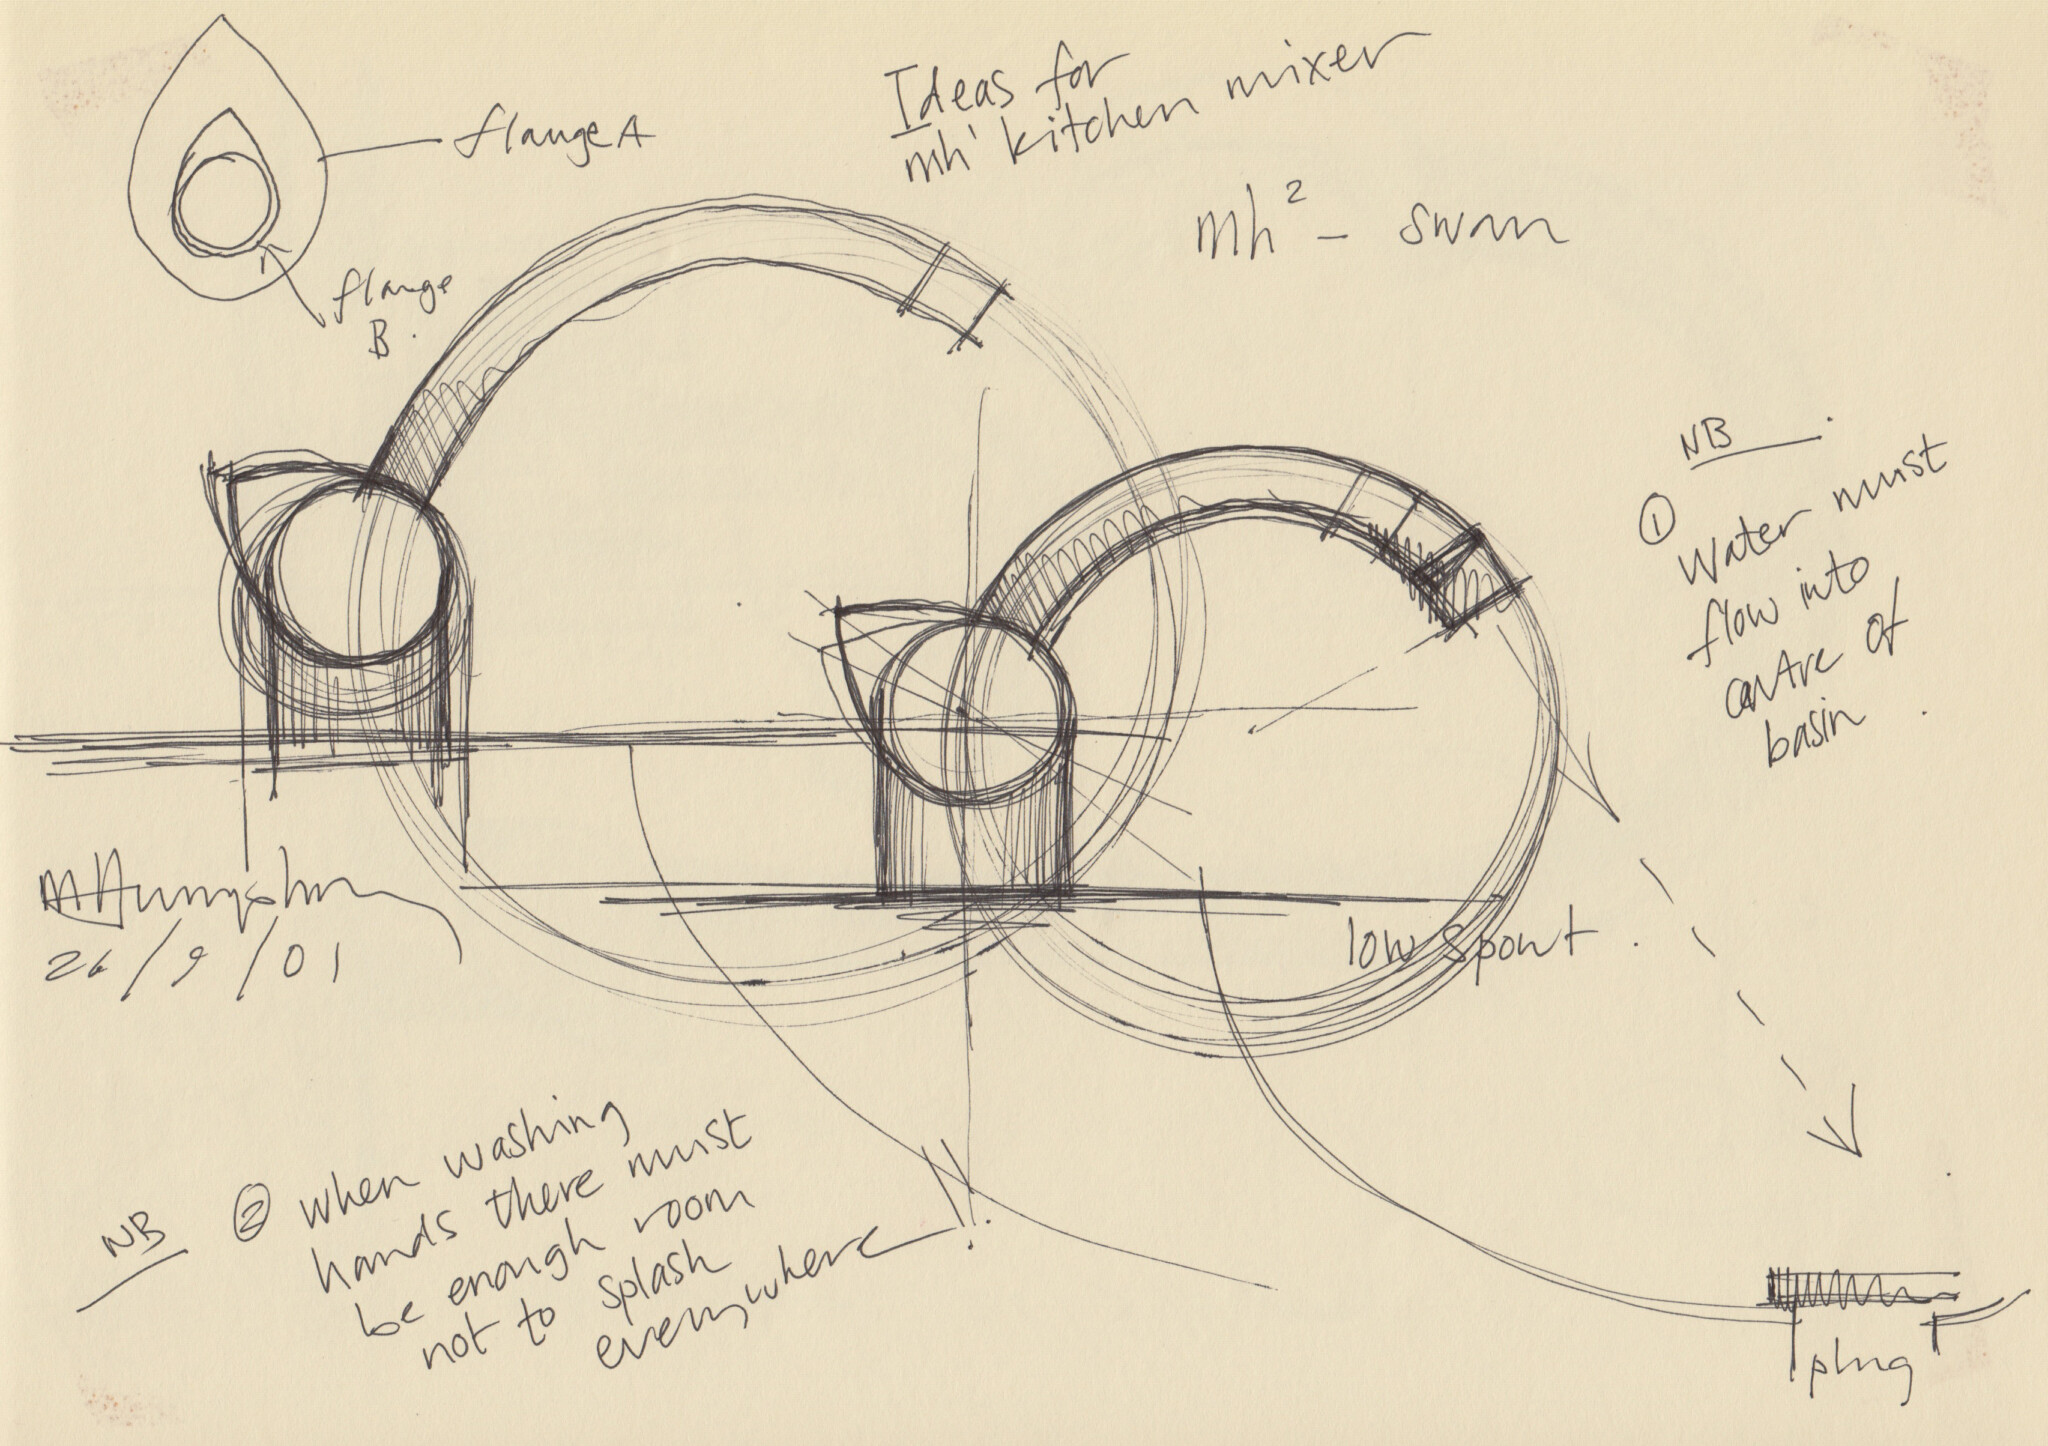 Ideas for
mh' kitchen mixer
mh² - swan
flange A
flange
B.
NB
① Water must
flow into
centre of
basin.
low spout.
26/9/01
NB ② when washing
hands there must
be enough room
not to splash
everywhere!!
plug